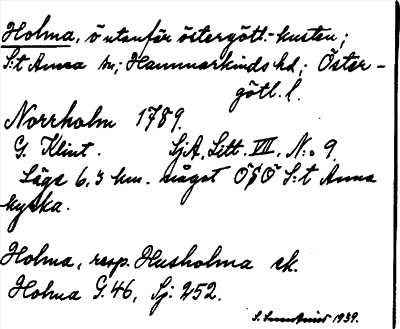 Holma, ö utanför östergötl.-kusten;
S:t Anna sn; Hammarkinds hd; Öster-
götl. l.
Norrholm 1789.
G. Klint. SjA, Litt. VII, N:o 9.
Läge 6,3 km. något ÖSÖ S:t Anna
kyrka.
Holma, resp. Husholma ek.
Holma G. 46, Sj: 252.
1939.